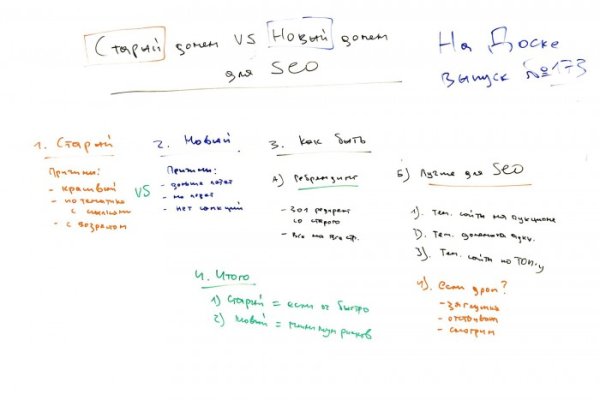 Старый домен VS Новый домен
для SEO
На Доске
выпуск №173
1. Старый
Причины:
- красивый
- по тематике
с ссылками
- с возрастом
VS
2. Новый
Причины:
- дольше
- не
- нет санкций
3. Как быть
А) Ребрендинг
- 301 редирект
со старого
- Все на все стр.
Б) Лучше для SEO
1). Тем. сайты на аукционе
2). Тем. домены
3). Тем. сайты по ТОП-у
4). если дроп?
- заглушка
- отстоять
- смотрим
4. Итого
1) Старый = если быстро
2) Новый = минимум рисков